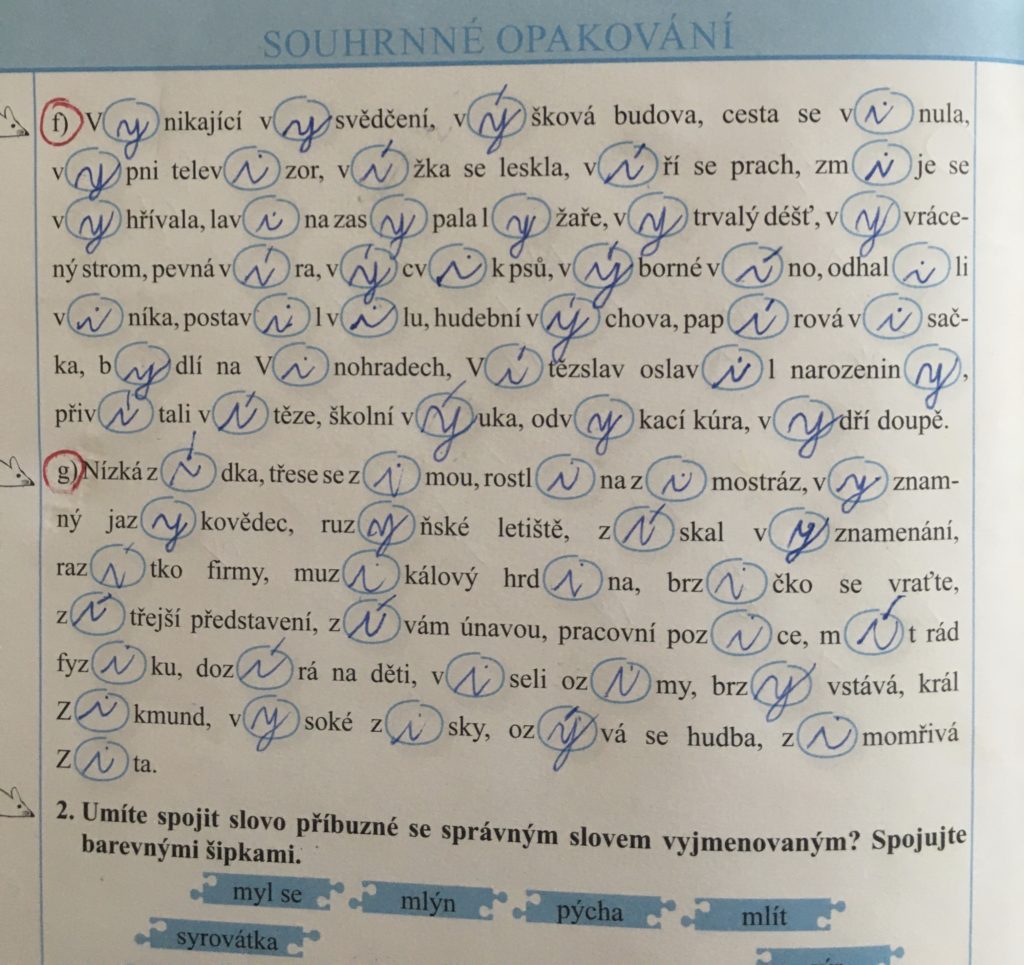 SOUHRNNÉ OPAKOVÁNÍ
f) Vynikající vysvědčení, výšková budova, cesta se vinula,
vypni televizor, vížka se leskla, víří se prach, zmije se
vyhřívala, lavina zasypala lyžaře, vytrvalý déšť, vyvráce-
ný strom, pevná víra, výcvik psů, výborné víno, odhalili
viníka, postavil vilu, hudební výchova, papírová visač-
ka, bydlí na Vinohradech, Vítězslav oslavil narozeniny,
přivítali vítěze, školní výuka, odvykací kúra, vydří doupě.
g) Nízká zídka, třese se zimou, rostlina zimostráz, vyznam-
ný jazykovědec, ruzyňské letiště, získal vyznamenání,
razítko firmy, muzikálový hrdina, brzičko se vraťte,
zítřejší představení, zívám únavou, pracovní pozice, mít rád
fyziku, dozírá na děti, viseli ozimy, brzy vstává, král
Zikmund, vysoké zisky, ozývá se hudba, zimomřivá
Zita.
2. Umíte spojit slovo příbuzné se správným slovem vyjmenovaným? Spojujte
barevnými šipkami.
myl se mlýn pýcha mlít
syrovátka